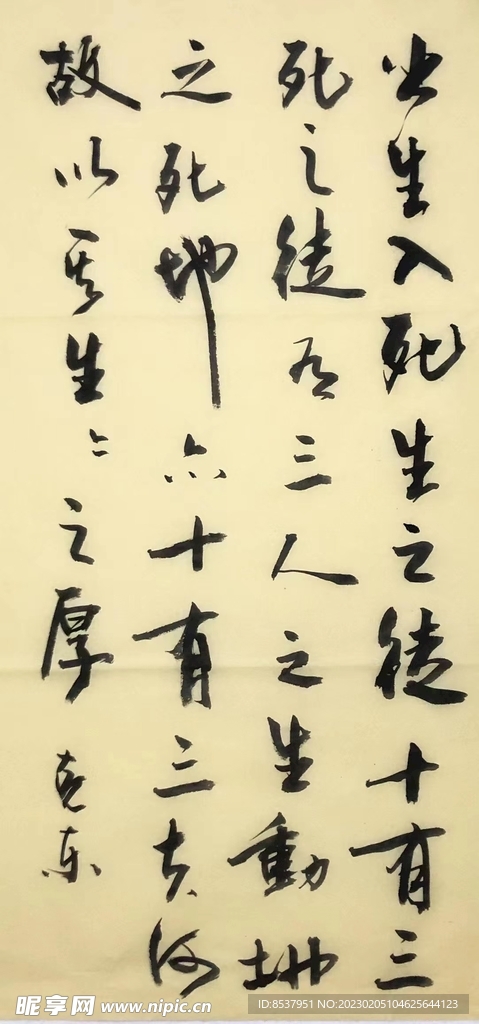 出生入死生之徒十有三
死之徒有三人之生動地
之死地亦十有三夫何
故以其生々之厚
克东
昵享网 www.nipic.cn
ID:8537951 NO:20230205104625644123